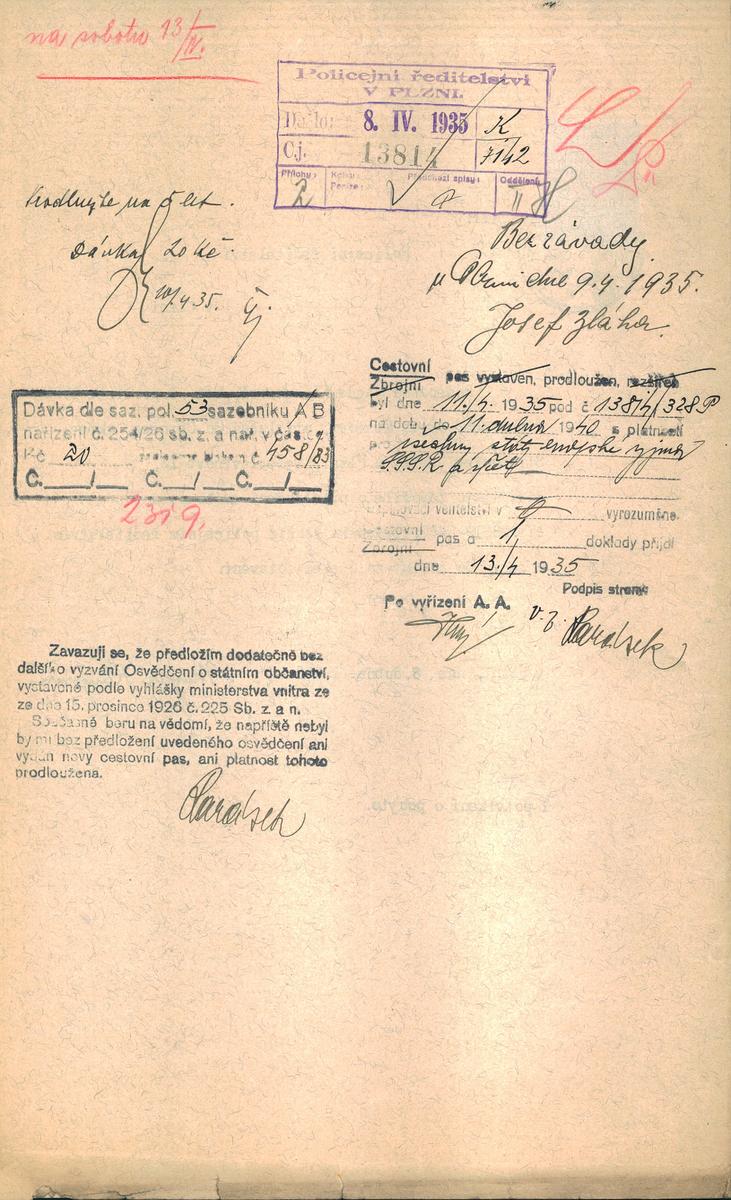 na sobotu 13/IV.
Policejní ředitelství
V PLZNI.
Došlo: 8. IV. 1935 K
Č.j. 13814 7142
Přílohy: 2 Kolky: Peníze: Předchozí spisy: Oddělení: II
na 5 let.
Dávka 20 Kč
10/4 35.
Bez závady.
v Plzni dne 9.4.1935.
Josef Zláha.
Cestovní
Zbrojní pas vystaven, prodloužen, rozšířen
byl dne 11./4. 1935 pod č 13814/328 P
na dobu do 11. dubna 1940 s platností
pro všechny státy evropské vyjma
S.S.S.R. a zpět
velitelství v vyrozuměno.
Cestovní
Zbrojní pas a 1 doklady přijal
dne 13./4 1935
Podpis strany:
Po vyřízení A. A.
Dávka dle saz. pol. 53 sazebníku A B
nařízení č. 254/26 sb. z. a nař. v částce
Kč 20 č. 458/83
Č. ___/___ Č. ___/___ Č. ___/___
2319.
Zavazuji se, že předložím dodatečně bez
dalšího vyzvání Osvědčení o státním občanství,
vystavené podle vyhlášky ministerstva vnitra ze
ze dne 15. prosince 1926 č. 225 Sb. z. a n.
Současně beru na vědomí, že napříště nebyl
by mi bez předložení uvedeného osvědčení ani
vydán nový cestovní pas, ani platnost tohoto
prodloužena.